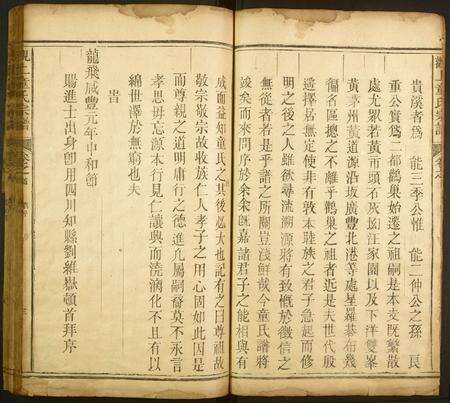 貴溪者爲 能三李公惟 能二仲公之孫 良
重公實爲二都鸛巢始遷之祖嗣是本支旣繁散
處尤眾若黃市頭石灰㘭汪家園以及下洋雙峯
黃茅州黃道源沿坂廣豐北港等處星羅碁布幾
徧省區總之不離乎鸛巢之祖者近是夫世代殷
遙擇居無定使非有敦本睦族之君子急起而修
明之後之人雖欲尋流溯源將有致慨於徵信之
無從者若是乎譜之所關豈淺鮮哉今童氏譜將
竣矣而來問序於余余旣嘉諸君子之能相與有
成而益知童氏之其後必大也記有之曰尊祖故
敬宗敬宗故收族仁人孝子之用心固如此因是
而尊親之道明庸行之德進凡屬嗣裔莫不永言
孝思毋忘源本行見仁讓興而澆漓化不且有以
綿世澤於無窮也夫
旹
龍飛咸豐元年中和節
賜進士出身卽用四川知縣劉維嶽頓首拜序